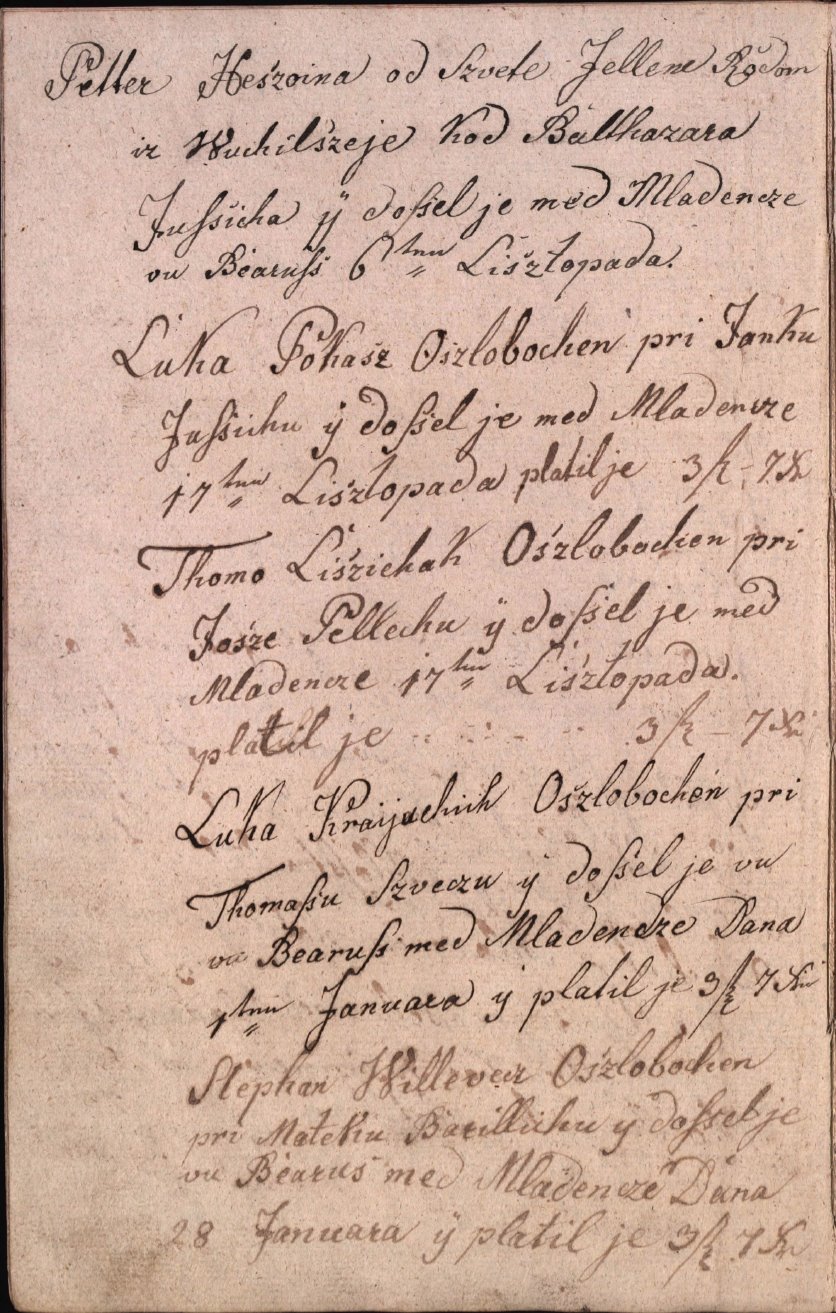 Petter Heszoina od Szvete Jellene Rodom
iz Wuchilszeje Kod Balthazara
Jussicha ÿ dossel je med Mladencze
vu Bearuss 6tnu Lisztopada.
Luka Fokasz Oszlobochen pri Janku
Jussichu ÿ dossel je med Mladencze
17tnu Lisztopada platil je 3 f - 7 Xr
Thomo Liszichak Oszlobochen pri
Josze Pellechu ÿ dossel je med
Mladencze 17tnu Lisztopada.
platil je 3 f - 7 Xr
Luka Kraijachich Oszlobochen pri
Thomassu Szveczu ÿ dossel je vu
vu Bearuss med Mladencze Dana
1tnu Januara ÿ platil je 3 f 7 Xr
Stephan Willevecz Oszlobochen
pri Mateku Bazillichu ÿ dossel je
vu Bearus med Mladencze Dana
28 Januara ÿ platil je 3 f 7 Xr